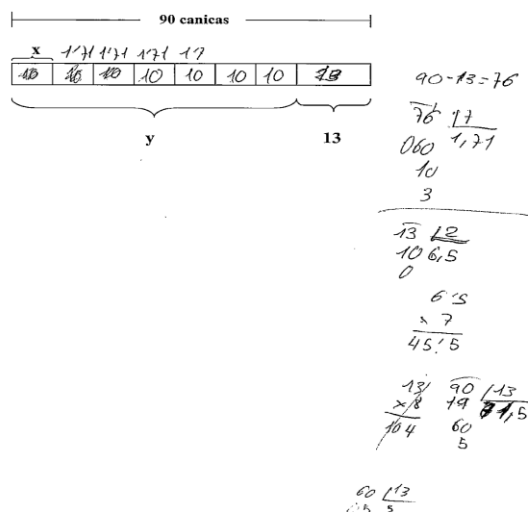 90 canicas
x 1'71 1'71 1'71 1'7
10 10 10 10 10 10 10 13
y 13
90-13=76
76 7
060 1,71
10
3
13 2
10 6,5
0
6'5
x 7
45'5
13 90 13
x 8 19 1,5
104 60
5
60 13
5